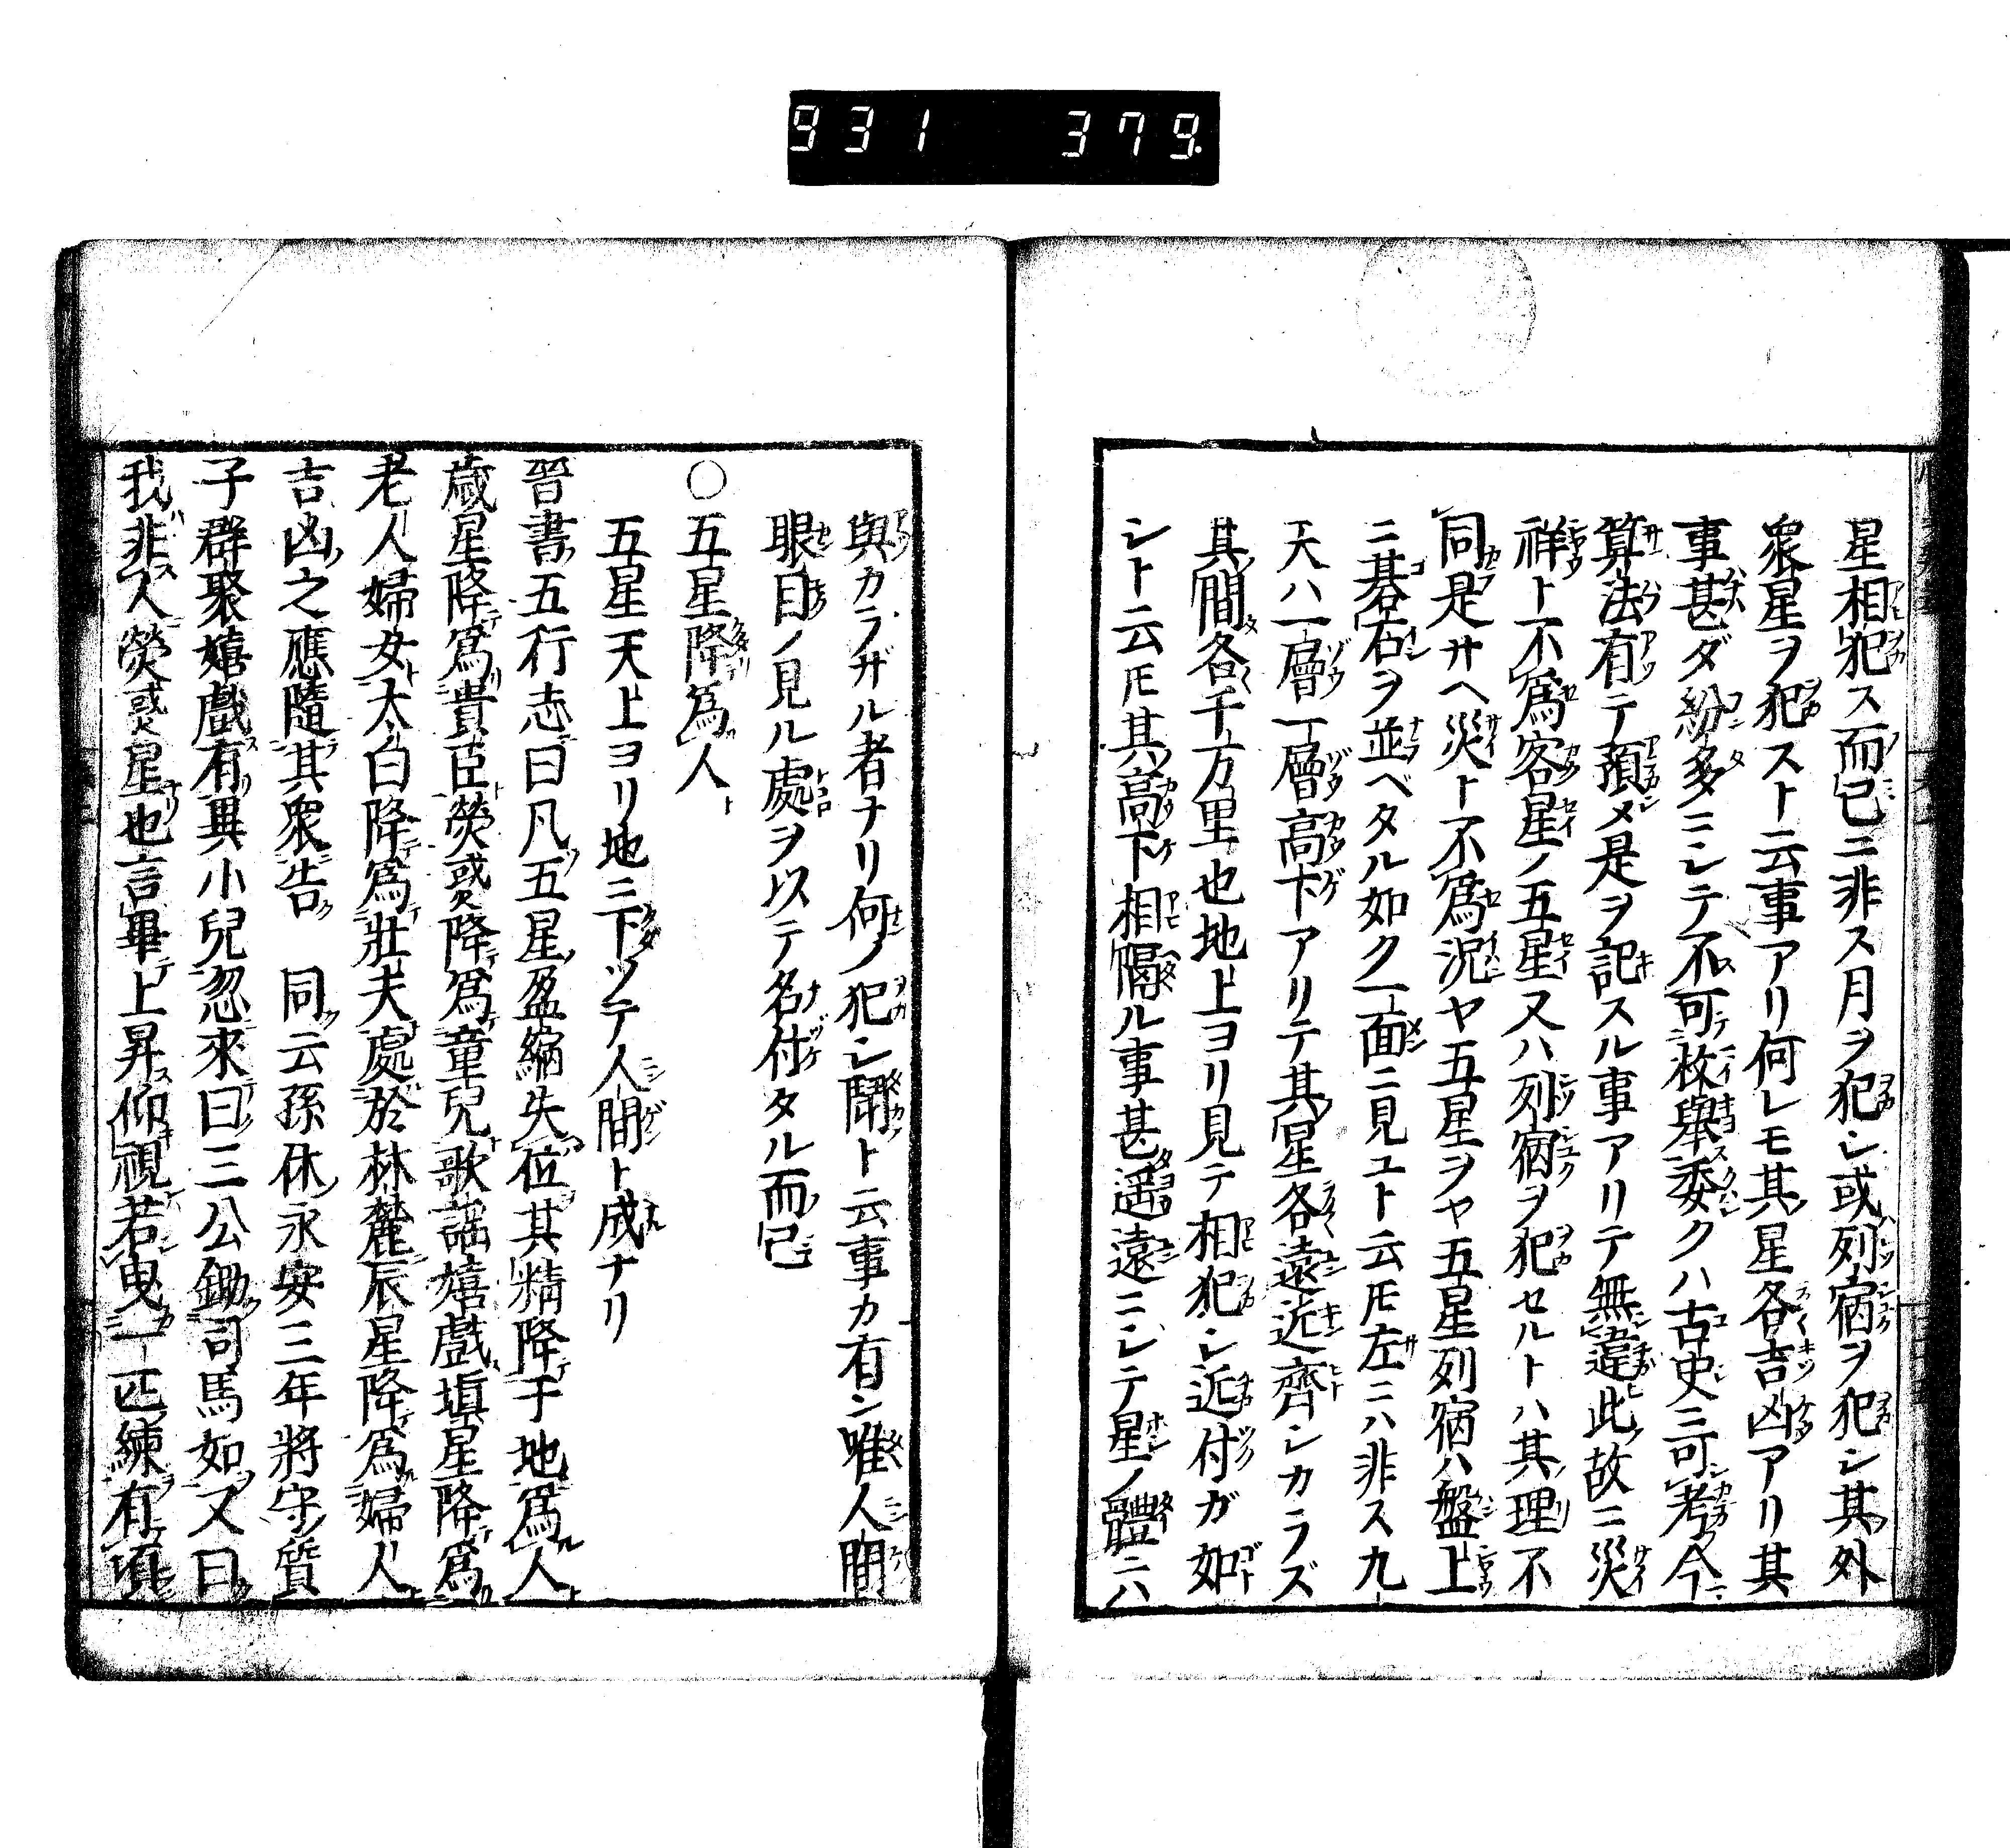 931 379
星相犯ス而已ニ非ス月ヲ犯シ或列宿ヲ犯シ其外
衆星ヲ犯スト云事アリ何レモ其星各吉凶アリ其
事甚ダ紛多ニシテ不可枚舉委クハ古史ニ可考今
算法有テ預メ是ヲ記スル事アリテ無違此故ニ災
祥ト不爲客星ノ五星又ハ列宿ヲ犯セルトハ其理不
同是サヘ災ト不爲況ヤ五星ヲヤ五星列宿ハ盤上
ニ碁石ヲ並ベタル如ク一面ニ見ユト云𪜈左ニハ非ス九
天ハ一層一層高下アリテ其星各遠近齊シカラズ
其間各千万里也地上ヨリ見テ相犯シ近付ガ如
シト云𪜈其高下相隔ル事甚遥遠ニシテ星ノ體ニハ
與カラザル者ナリ何ノ犯シ鬪ト云事カ有ン唯人間
眼目ノ見ル處ヲ以テ名付タル而已
○五星降爲人
五星天上ヨリ地ニ下ツテ人間ト成ナリ
晉書五行志曰凡五星盈縮失位其精降于地爲人
歳星降爲貴臣熒惑降爲童兒歌謡嬉戲塡星降爲
老人婦女太白降爲壯夫處於林麓辰星降爲婦人
吉凶之應隨其衆告 同云孫休永安三年將守質
子群聚嬉戲有異小兒忽來曰三公鋤司馬如又曰
我非人熒惑星也言畢上昇仰視若曳一匹練有頃